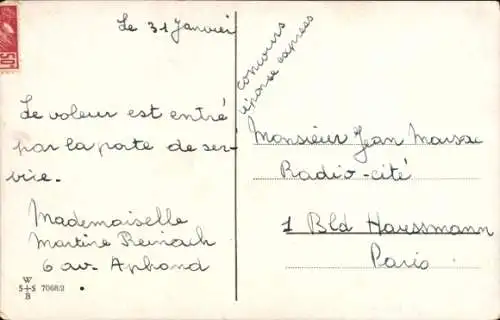 50c
Le 31 Janvier
Le voleur est entré
par la porte de ser-
vice.
Mademoiselle
Martine Reinach
6 av. Alphand
W
S+S 7068/2
B
concours
réponse express
Monsieur Jean
Radio-cité
1 Bld Haussmann
Paris